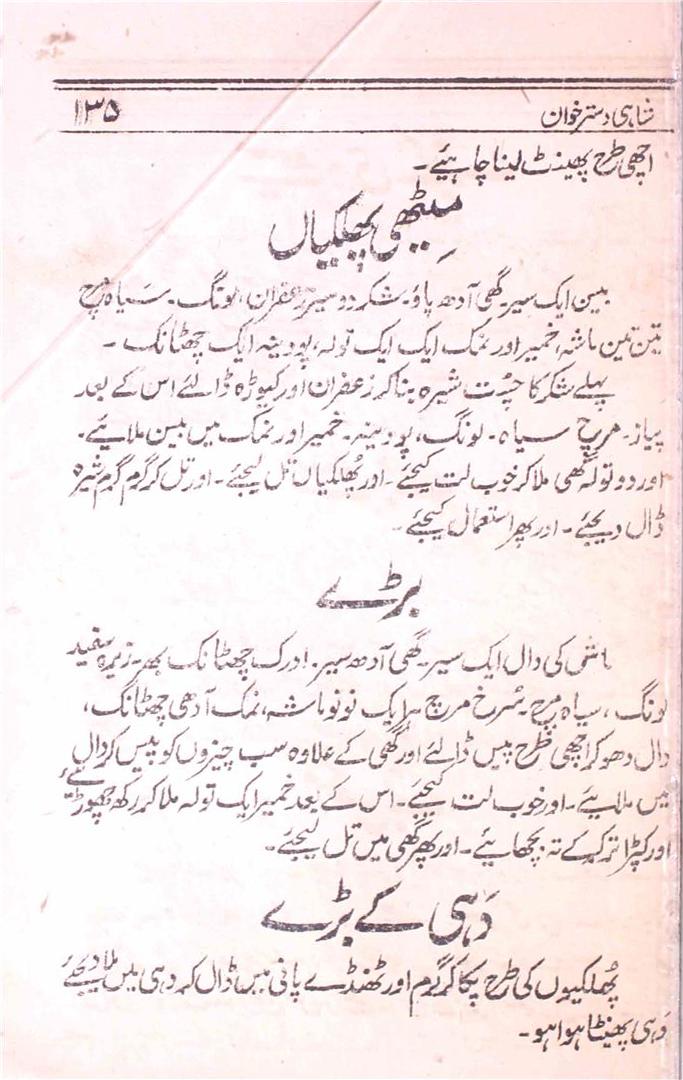 شاہی دسترخوان ۱۳۵
اچھی طرح پھینٹ لینا چاہیئے۔
میٹھی پھلکیاں
بیسن ایک سیر گھی آدھ پاؤ۔ شکر دو سیر زعفران، لونگ۔ سیاہ مرچ
تین تین ماشہ، خمیر اور نمک ایک ایک تولہ، پودینہ ایک چھٹانک۔
پہلے شکر کا چُست شیرہ بنا کر زعفران اور کیوڑہ ڈالئے اس کے بعد
پیاز۔ مرچ سیاہ۔ لونگ، پودینہ۔ خمیر اور نمک میں بیسن ملایئے۔
اور دو تولہ گھی ملا کر خوب لت کیجئے۔ اور پھُلکیاں تل لیجئے۔ اور تل کر گرم گرم شیرہ
ڈال دیجئے۔ اور پھر استعمال کیجئے۔
بڑے
ماش کی دال ایک سیر۔ گھی آدھ سیر۔ ادرک چھٹانک بھر۔ زیرہ سفید
لونگ، سیاہ مرچ۔ سُرخ مرچ ہر ایک نو نو ماشہ، نمک آدھی چھٹانک،
دال دھو کر اچھی طرح پیس ڈالئے اور گھی کے علاوہ سب چیزوں کو پیس کر دال
میں ملایئے۔ اور خوب لت کیجئے۔ اس کے بعد خمیر ایک تولہ ملا کر رکھ چھوڑیئے
اور کپڑا تر کر کے تہ بچھایئے۔ اور پھر گھی میں تل لیجئے۔
دَہی کے بڑے
پھُلکیوں کی طرح پکا کر گرم اور ٹھنڈے پانی میں ڈال کر دہی میں ملا دیجئے
دَہی پھینٹا ہوا ہو۔